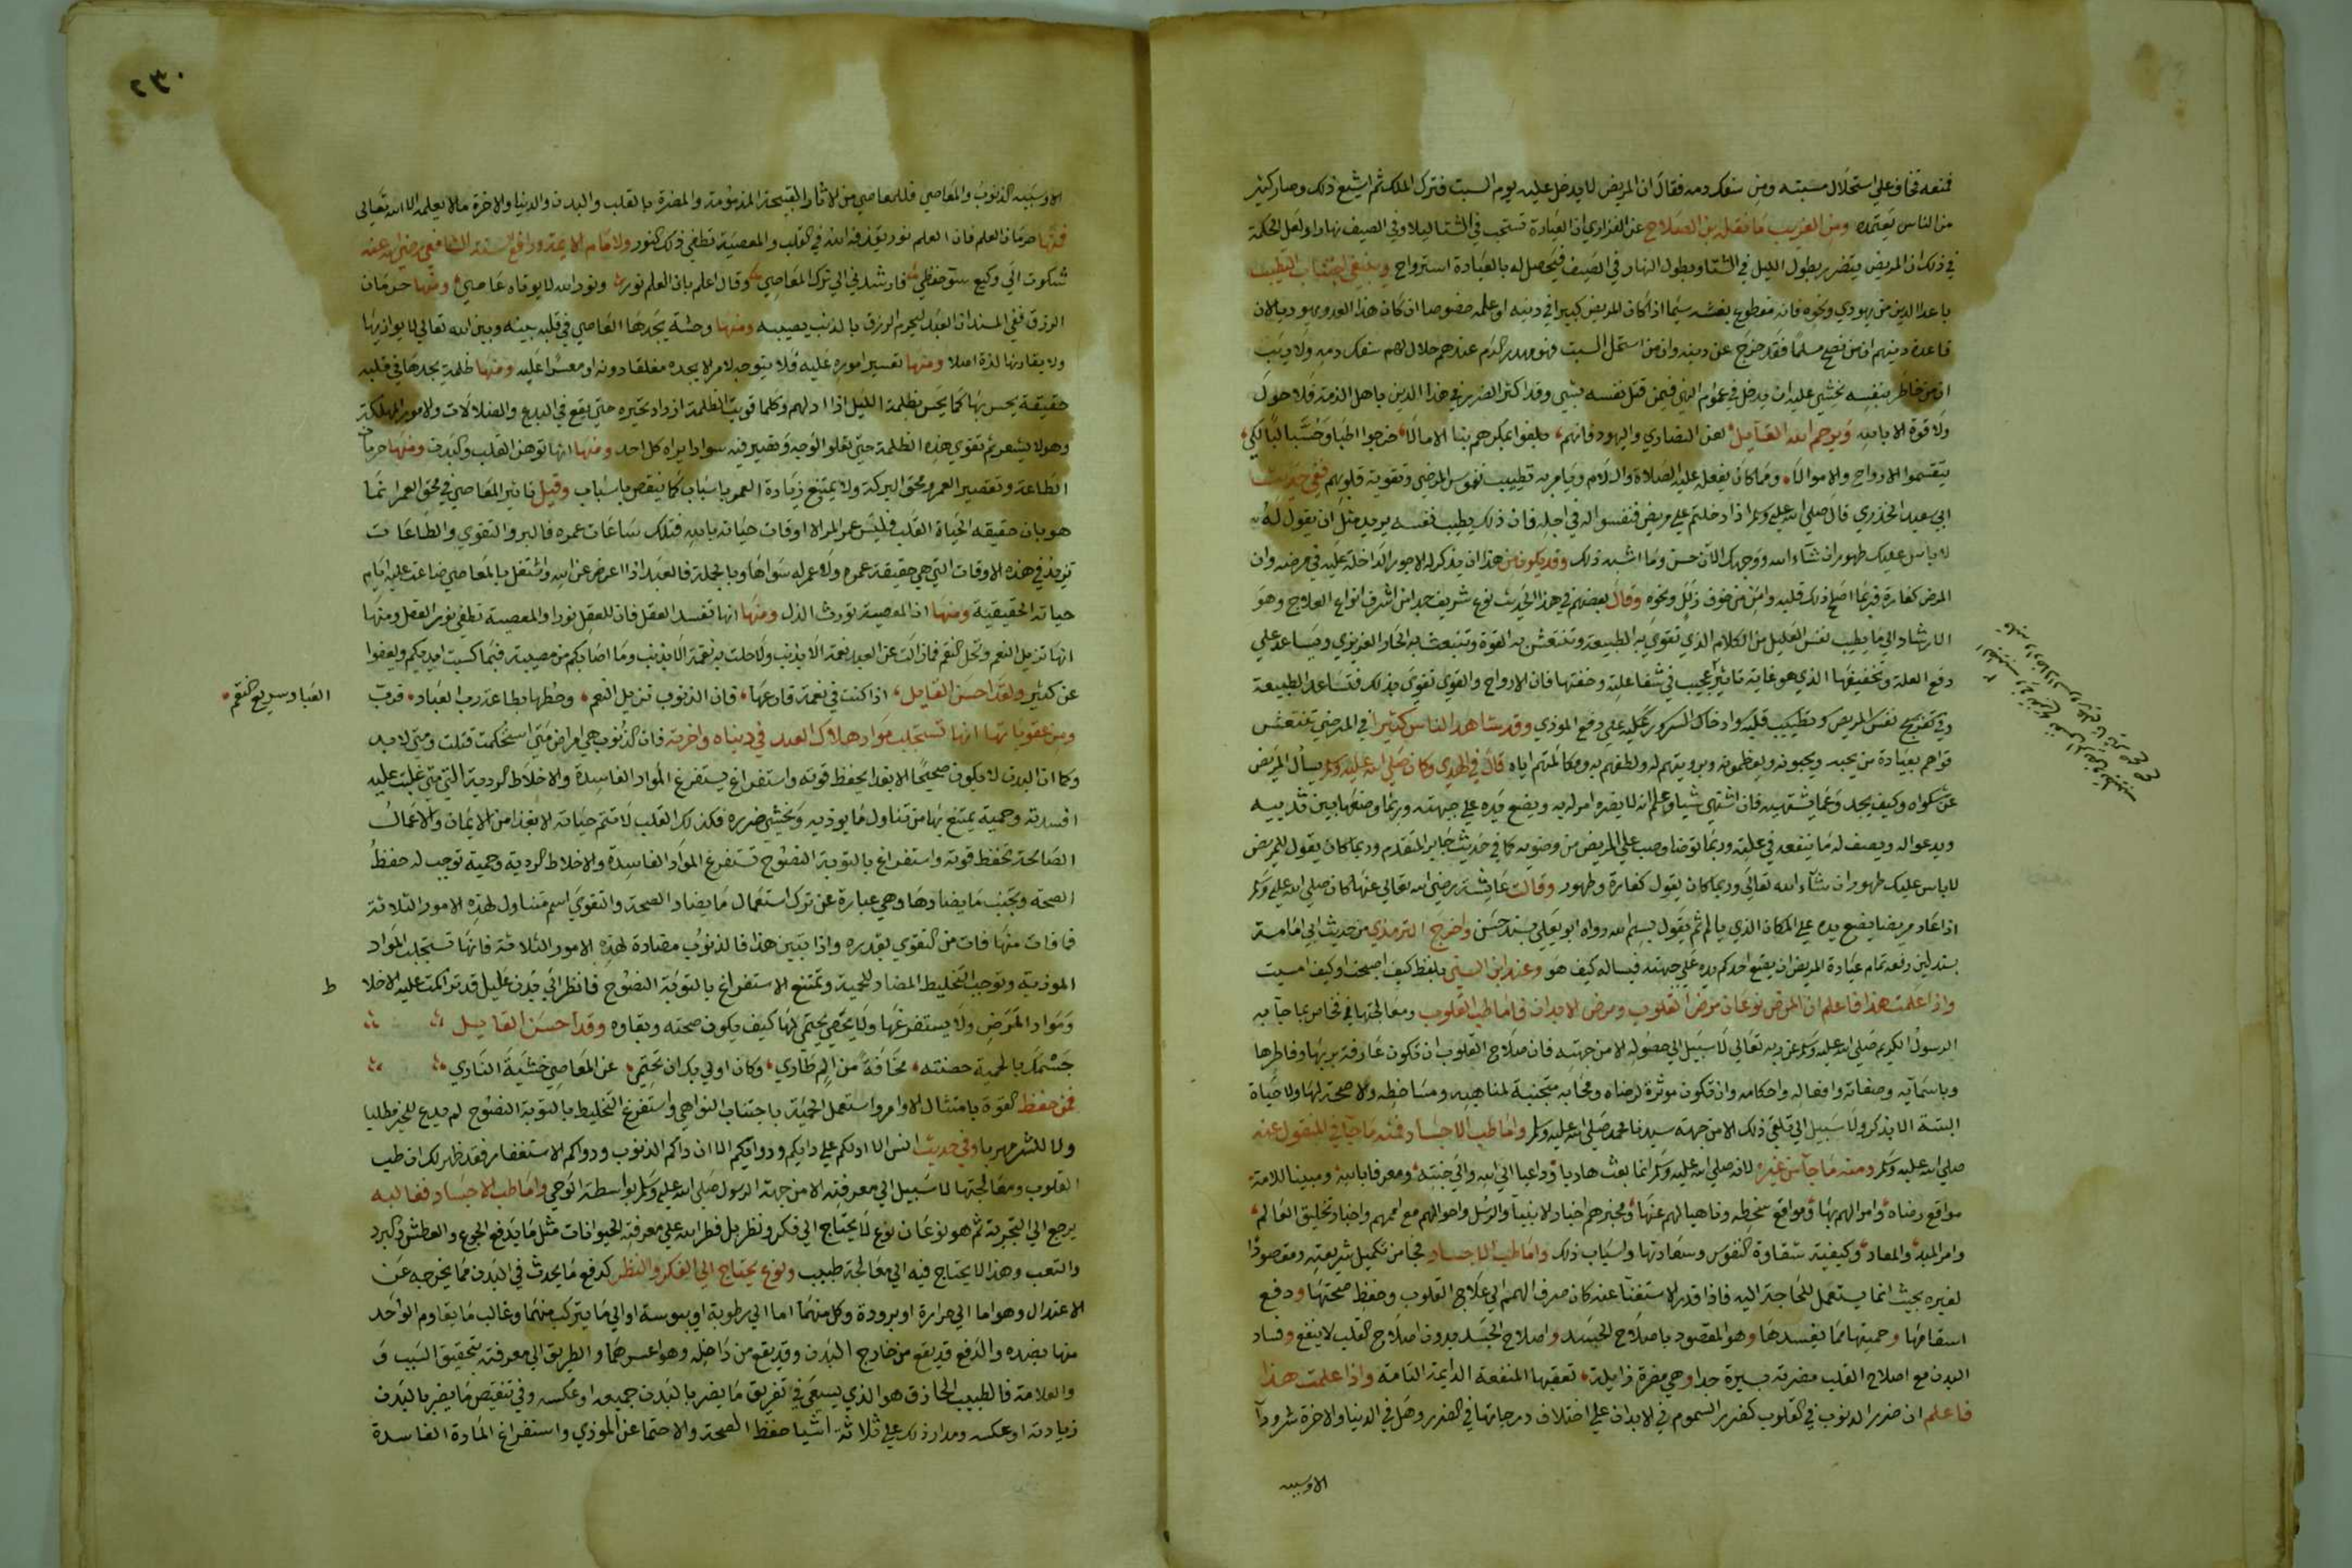 فمنعه فخاف علي استحلال مسبته ومن سفك دمه فقال ان المريض لا يدخل عليه يوم السبت فترك الملك ثم اشيع ذلك وصار كثير
من الناس يعتمده ومن الغريب ما نقله بن الصلاح عن الفزاري ان العيادة تستحب في الشتا ليلا وفي الصيف نهارا ولعل الحكمة
في ذلك ان المريض يتضرر بطول الليل في الشتا وبطول النهار في الصيف فيحصل له بالعيادة استرواح وينبغي اجتناب التطبب
باعدا الدين من يهودي ونحوه فانه مقطوع بغشه سيما اذا كان المريض كبيرا في دينه او علمه خصوصا ان كان هذا العدو يهوديا لان
قاعدة دينهم ان من نصح مسلما فقد خرج عن دينه وان من استحل السبت فهو مهدر الدم عندهم حلال لهم سفك دمه ولا ريب
ان من خاطر بنفسه يخشي عليه ان يدخل في عموم النهي فيمن قتل نفسه بشي وقد اكثر الضرر في هذا الدين باهل الذمة فلا حول
ولا قوة الا بالله ويرحم الله القايل لعن النصاري واليهود فانهم بلغوا بمكرهم بنا الامالا خرجوا اطبا وحسابا لكي
يتقسموا الارواح والاموالا ومما كان يفعله عليه الصلاة والسلام ويامر به تطييب نفوس المرضي وتقوية قلوبهم ففي حديث
ابي سعيد الخدري قال صلي الله عليه وسلم اذا دخلتم علي مريض فنفسوا له في اجله فان ذلك يطيب نفسه يريد مثل ان يقول له
لا باس عليك طهور ان شاء الله ووجهك الان حسن وما اشبه ذلك وقد يكون من هذا ان يذكر له الاجور الداخلة عليه في مرضه وان
المرض كفارة فربما اصلح ذلك قلبه وامن من خوف زلل ونحوه وقال بعضهم في هذا الحديث نوع شريف جدا من اشرف انواع العلاج وهو
الارشاد الي ما يطيب نفس العليل من الكلام الذي تقوي به الطبيعة وتنتعش به القوة وينبعث به الحار الغريزي ويساعد علي
دفع العلة وتخفيفها الذي هو غاية تاثير عجيب في شفا علته وخفتها فان الارواح والقوي تقوي بذلك فتساعد الطبيعة
وفي تفريج نفس المريض وتطييب قلبه وادخال السرور عليه علي دفع الموذي وقد شاهد الناس كثيرا في المرضي تنتعش
قواهم بعيادة من يحبه ويحبونه ويعظمونه ورويتهم له ولطفهم به ومكالمتهم اياه قال في الهدي وكان صلي الله عليه وسلم يسال المريض
عن شكواه وكيف يجد وعما يشتهيه فان اشتهي شيا وعلم انه لا يضره امر له به ويضع يده علي جبهته وربما وضعها بين ثدييه
ويدعوا له ويصف له ما ينفعه في علته وربما توضا وصب علي المريض من وضويه كما في حديث جابر المتقدم وربما كان يقول للمريض
لا باس عليك طهور ان شاء الله تعالي وربما كان يقول كفارة وطهور وقالت عايشة رضي الله تعالي عنها كان صلي الله عليه وسلم
اذا عاد مريضا يضع يده علي المكان الذي يالم ثم يقول بسم الله رواه ابو يعلي بسند حسن واخرج الترمذي من حديث ابي امامة
بسند لين رفعه تمام عيادة المريض ان يضع احدكم يده علي جبهته فيساله كيف هو وعند ابن السني بلفظ كيف اصبحت او كيف امسيت
واذا علمت هذا فاعلم ان المرض نوعان مرض القلوب ومرض الابدان فاما طب القلوب ومعالجتها فخاص بما جا به
الرسول الكريم صلي الله عليه وسلم عن ربه تعالي لا سبيل الي حصوله الا من جهته فان صلاح القلوب ان تكون عارفة بربها وفاطرها
وباسمايه وصفاته وافعاله واحكامه وان تكون موثرة لرضاه ومحابه متجنبة لمناهيه ومساخطه ولا صحة لها ولا حياة
البتة الا بذكر ولا سبيل الي تلقي ذلك الا من جهة سيدنا محمد صلي الله عليه وسلم واما طب الاجساد فمنه ما جا في المنقول عنه
صلي الله عليه وسلم ومنه ما جا عن غيره لانه صلي الله عليه وسلم انما بعث هاديا وداعيا الي الله والي جنته ومعرفا بالله ومبينا للامة
مواقع رضاه وامرا لهم بها ومواقع سخطه وناهيا لهم عنها ومخبرهم اخبار الانبيا والرسل واحوالهم مع اممهم واخبار تخليق العالم
وامر المبدا والمعاد وكيفية شقاوة النفوس وسعادتها واسباب ذلك واما طب الاجساد فجا من تكميل شريعته ومقصودا
لغيره بحيث انما يستعمل للحاجة اليه فاذا قدر الاستغنا عنه كان صرف الهمم الي علاج القلوب وحفظ صحتها ودفع
اسقامها وحميتها مما يفسدها وهو المقصود باصلاح الجسد واصلاح الجسد بدون اصلاح القلب لا ينفع وفساد
البدن مع اصلاح القلب مضرته يسيرة جدا وهي مضرة زايلة تعقبها المنفعة الدايمة التامة واذا علمت هذا
فاعلم ان ضرر الذنوب في القلوب كضرر السموم في الابدان علي اختلاف درجاتها في الضرر وهل في الدنيا والاخرة شر ودا
الا وسببه
٢٣٠
الا وسببه الذنوب والمعاصي فللمعاصي من الاثار القبيحة المذمومة والمضرة بالقلب والبدن والدنيا والاخرة ما لا يعلمه الا الله تعالي
فمنها حرمان العلم فان العلم نور يقذفه الله في القلب والمعصية تطفي ذلك النور ولامام الايمة ورافع السنة الشافعي رضي الله عنه
شكوت الي وكيع سو حفظي فارشدني الي ترك المعاصي وقال اعلم بان العلم نور ونور الله لا يوتاه عاصي ومنها حرمان
الرزق ففي المسند ان العبد ليحرم الرزق بالذنب يصيبه ومنها وحشة يجدها العاصي في قلبه بينه وبين الله تعالي لا يوازيها
ولا يقارنها لذة اصلا ومنها تعسير اموره عليه فلا يتوجه لامر الا يجده مغلقا دونه او معسرا عليه ومنها ظلمة يجدها في قلبه
حقيقة يحس بها كما يحس بظلمة الليل اذا ادلهم وكلما قويت الظلمة ازداد تحيره حتي يقع في البدع والضلالات والامور المهلكة
وهو لا يشعر ثم تقوي هذه الظلمة حتي تعلو الوجه وتصير فيه سوادا يراه كل احد ومنها انها توهن القلب والبدن ومنها حرمان
الطاعة وتقصير العمر ومحق البركة ولا يمتنع زيادة العمر باسباب كما ينقص باسباب وقيل تاثير المعاصي في محق العمر انما
هو بان حقيقه الحياة القلب فليس عمر المرا الا اوقات حياته بالله فتلك ساعات عمره فالبر والتقوي والطاعات
تزيد في هذه الاوقات التي هي حقيقة عمره ولا عمر له سواها وبالجملة فالعبد اذا اعرض عن الله واشتغل بالمعاصي ضاعت عليه ايام
حياته الحقيقية ومنها ان المعصية تورث الذل ومنها انها تفسد العقل فان للعقل نورا والمعصية تطفي نور العقل ومنها
انها تزيل النعم وتحل النقم فما زالت عن العبد نعمة الا بذنب ولا حلت به نقمة الا بذنب وما اصابكم من مصيبة فبما كسبت ايديكم ويعفوا
عن كثير ولقد احسن القايل اذا كنت في نعمة فارعها فان الذنوب تزيل النعم وحطها بطاعة رب العباد فرب
العباد سريع النقم
ومن عقوباتها انها تستجلب مواد هلاك العبد في دنياه واخرته فان الذنوب هي امراض متي استحكمت قتلت ومتي لا بد
وكما ان البدن لا يكون صحيحا الا بغدا يحفظ قوته واستفراغ يستفرغ المواد الفاسدة والاخلاط الردية التي متي غلبت عليه
افسدته وحمية يمتنع بها من تناول ما يوذيه ويخشي ضرره فكذلك القلب لا تتم حياته الا بغذا من الايمان والاعمال
الصالحة تحفظ قوته واستفراغ بالتوبة النصوح تستفرغ المواد الفاسدة والاخلاط الردية وحمية توجب له حفظ
الصحه وتجنب ما يضادها وهي عبارة عن ترك استعمال ما يضاد الصحة والتقوي اسم متناول لهذه الامور الثلاثة
فما فات منها فات من التقوي بقدره واذا تبين هذا فالذنوب مضادة لهذه الامور الثلاثة فانها تستجلب المواد
الموذية وتوجب التخليط المضاد للحمية وتمنع الاستفراغ بالتوبة النصوح فانظر الي بدن عليل قد تراكمت عليه الاخلا
ط
ومواد المرض ولا يستفرغها ولا يحتمي لها كيف يكون صحته وبقاوه وقد احسن القايل
جسمك بالحمية حصنته مخافة من الم طاري وكان اولي بك ان تحتمي عن المعاصي خشية الناري
فمن حفظ القوة بامتثال الاوامر واستعمل الحمية باجتناب النواهي واستفرغ التخليط بالتوبة النصوح لم يدع للخير مطلبا
ولا للشر مهربا وفي حديث انس الا ادلكم علي دايكم ودوايكم الا ان داكم الذنوب ودواكم الاستغفار فقد ظهر لك ان طب
القلوب ومعالجتها لا سبيل الي معرفته الا من جهة الرسول صلي الله عليه وسلم بواسطة الوحي واما طب الاجساد فغالبه
يرجع الي التجربة ثم هو نوعان نوع لا يحتاج الي فكر ونظر بل فطر الله علي معرفته الحيوانات مثل ما يدفع الجوع والعطش والبرد
والتعب وهذا لا يحتاج فيه الي معالجة طبيب ونوع يحتاج الي الفكر والنظر كدفع ما يحدث في البدن مما يخرجه عن
الاعتدال وهو اما الي حرارة او برودة وكل منهما اما الي رطوبة او يبوسة او الي ما يتركب منهما وغالب ما يقاوم الواحد
منها بضده والدفع قد يقع من خارج البدن وقد يقع من داخله وهو اعسرهما والطريق الي معرفته بتحقيق السبب و
والعلامة فالطبيب الحاذق هو الذي يسعي في تفريق ما يضر بالبدن جمعه او عكسه وفي تنقيص ما يضر بالبدن
زيادته او عكسه ومدار ذلك علي ثلاثة اشيا حفظ الصحة والاحتما عن الموذي واستفراغ المادة الفاسدة